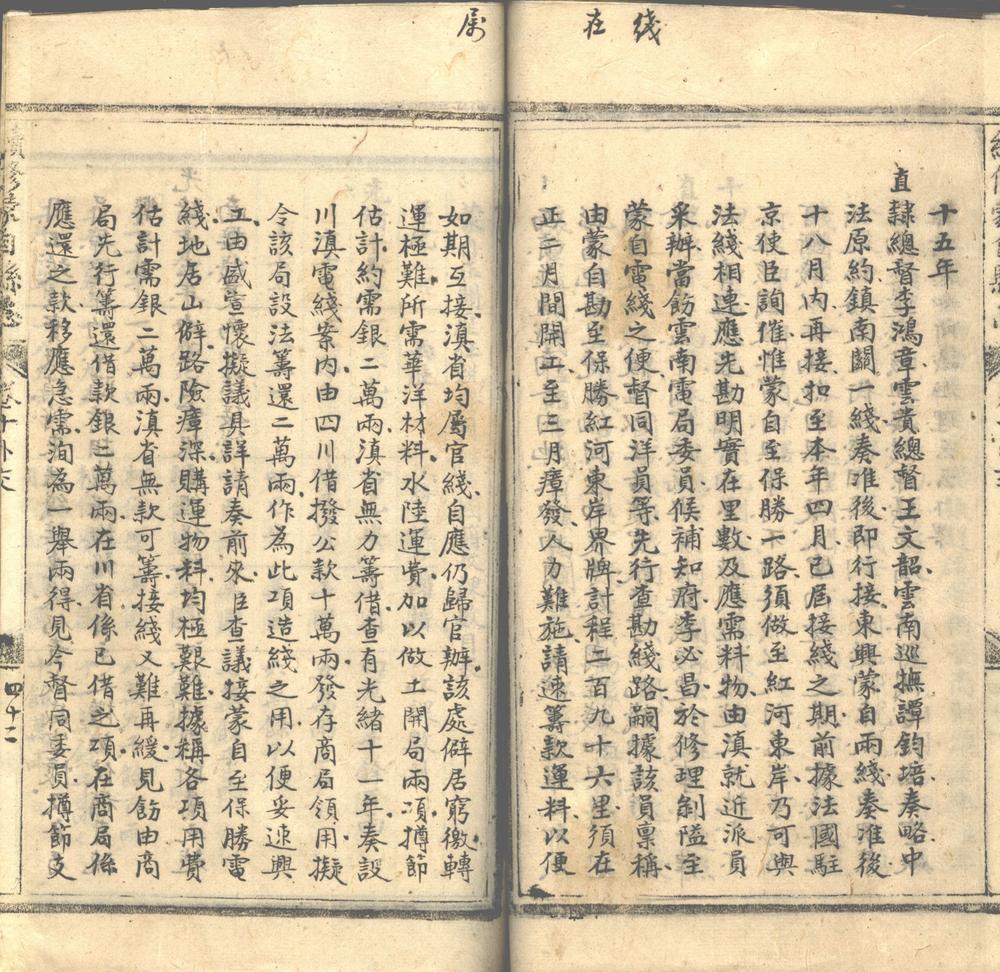 綫
在
属
十五年
直隸總督李鴻章雲貴總督王文韶雲南巡撫譚鈞培奏略中
法原約鎮南關一綫奏准後即行接東興蒙自兩綫奏准後
十八月內再接扣至本年四月已屆接綫之期前據法國駐
京使臣詢催惟蒙自至保勝一路須做至紅河東岸乃可與
法綫相連應先勘明實在里數及應需料物由滇就近派員
釆辦當飭雲南電局委員候補知府李必昌於修理剝隘至
蒙自電綫之便督同洋員等先行查勘綫路嗣據該員禀稱
由蒙自勘至保勝紅河東岸界牌計程二百九十六里須在
正二月間開工至三月瘴發人力難施請速籌款運料以便
如期互接滇省均屬官綫自應仍歸官辦該處僻居窮徼轉
運極難所需華洋材料水陸運費加以做土開局兩項撙節
估計約需銀二萬兩滇省無力籌借查有光緒十一年奏設
川滇電綫案內由四川借撥公款十萬兩發存商局領用擬
令該局設法籌還二萬兩作為此項造綫之用以便妥速興
工由盛宣懷擬議具詳請奏前來臣查議接蒙自至保勝電
綫地居山僻路險瘴深購運物料均極艱難據稱各項用費
估計需銀二萬兩滇省無款可籌接綫又難再緩見飭由商
局先行籌還借款銀二萬兩在川省係已借之項在商局係
應還之款移應急需洵為一舉兩得見今督同委員撙節支
四十二